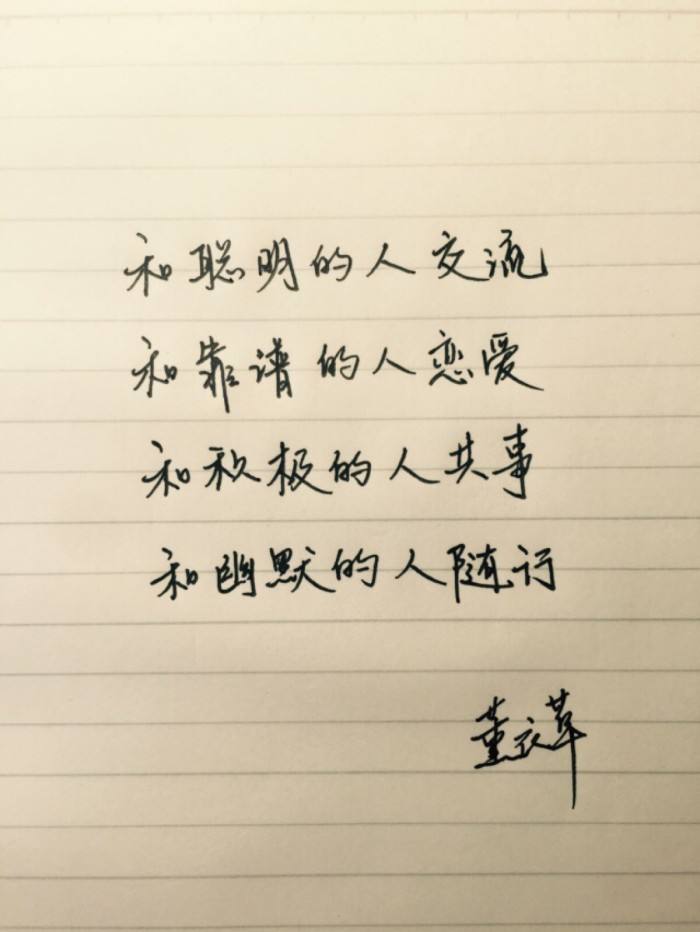 和聪明的人交流
和靠谱的人恋爱
和积极的人共事
和幽默的人随行
董文萍